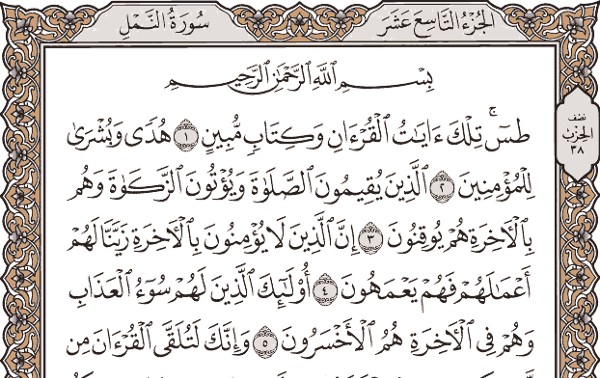 الجُزْءُ التَّاسِعَ عَشَرَ
سُورَةُ النَّمْلِ
بِسْمِ ٱللَّهِ ٱلرَّحْمَٰنِ ٱلرَّحِيمِ
طسٓۚ تِلْكَ ءَايَٰتُ ٱلْقُرْءَانِ وَكِتَابٖ مُّبِينٍ ١ هُدٗى وَبُشْرَىٰ
لِلْمُؤْمِنِينَ ٢ ٱلَّذِينَ يُقِيمُونَ ٱلصَّلَوٰةَ وَيُؤْتُونَ ٱلزَّكَوٰةَ وَهُم
بِٱلْأٓخِرَةِ هُمْ يُوقِنُونَ ٣ إِنَّ ٱلَّذِينَ لَا يُؤْمِنُونَ بِٱلْأٓخِرَةِ زَيَّنَّا لَهُمْ
أَعْمَٰلَهُمْ فَهُمْ يَعْمَهُونَ ٤ أُوْلَٰٓئِكَ ٱلَّذِينَ لَهُمْ سُوٓءُ ٱلْعَذَابِ
وَهُمْ فِي ٱلْأٓخِرَةِ هُمُ ٱلْأَخْسَرُونَ ٥ وَإِنَّكَ لَتُلَقَّى ٱلْقُرْءَانَ مِن
نصف
الحِزْب
٣٨